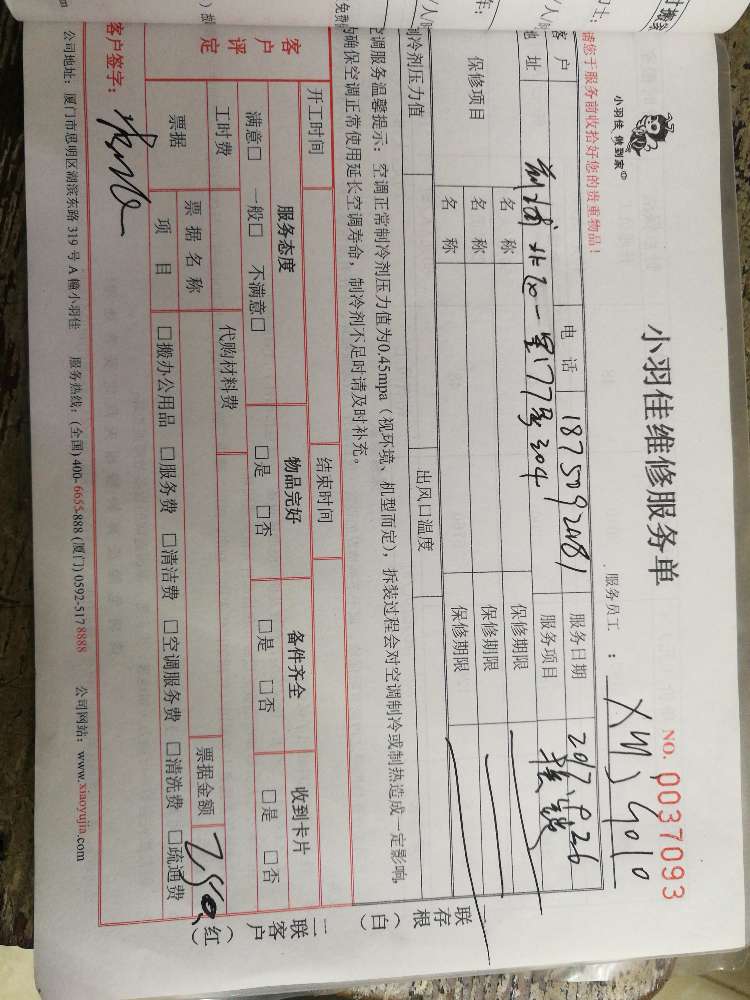 小羽佳 做到家
小羽佳维修服务单
NO. 0037093
请您于服务前收拾好您的贵重物品！
服务员工 ： XMJ 4010
客户
电 话 18750920481
服务日期 2017.9.26
地 址 17号304
服务项目
保修项目
名 称
保修期限
名 称
保修期限
名 称
保修期限
制冷剂压力值
出风口温度
空调服务温馨提示：空调正常制冷剂压力值为0.45mpa（视环境、机型而定），拆装过程会对空调制冷或制热造成一定影响，
确保空调正常使用延长空调寿命，制冷剂不足时请及时补充。
开工时间
结束时间
客户评定
服务态度
物品完好
备件齐全
收到卡片
满意□ 一般□ 不满意□
□是 □否
□是 □否
□是 □否
工时费
代购材料费
票据
票 据 名 称
票据金额
250
项 目
□搬办公用品 □服务费 □清洁费 □空调服务费 □清洗费 □疏通费
客户签字：
公司地址：厦门市思明区湖滨东路 319 号 A 幢小羽佳 服务热线：(全国) 400-6655-888 (厦门) 0592-517 8888 公司网站：www.xiaoyujia.com
一联存根（白）
二联客户（红）